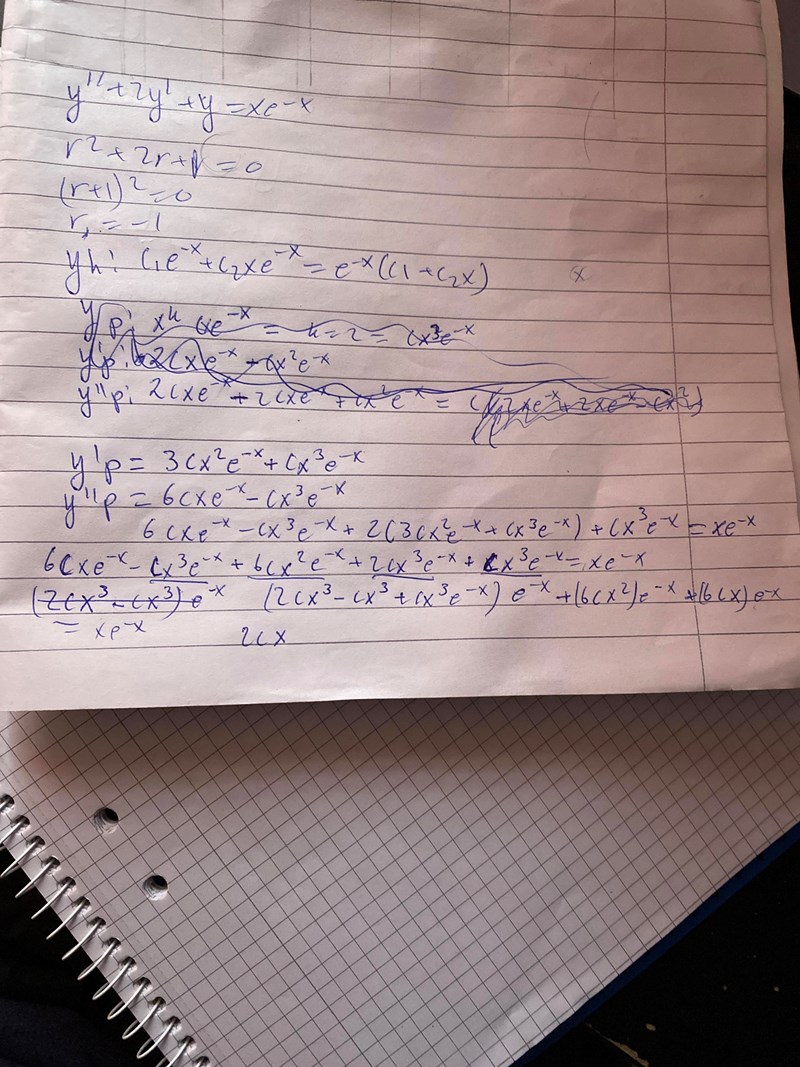 y'' + 2y' + y = xe^-x
r² + 2r + 1 = 0
(r+1)² = 0
r, = -1
yh: C1e^-x + C2xe^-x = e^-x(C1 + C2x)
yp: x^k Cxe^-x = k=2 = Cx³e^-x
y'p: 2Cxe^-x - Cx²e^-x
y''p: 2Cxe^-x + 2Cxe^-x + Cx²e^-x =
y'p = 3Cx²e^-x + Cx³e^-x
y''p = 6Cxe^-x - Cx³e^-x
6Cxe^-x - Cx³e^-x + 2(3Cx²e^-x + Cx³e^-x) + Cx³e^-x = xe^-x
6Cxe^-x - Cx³e^-x + 6Cx²e^-x + 2Cx³e^-x + Cx³e^-x = xe^-x
(2Cx³ - Cx³)e^-x (2Cx³ - Cx³ + Cx³e^-x) e^-x + (6Cx²)e^-x + (6Cx)e^-x
= xe^-x 2Cx